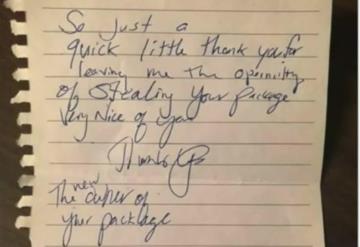 So just a
quick little thank you for
leaving me the oppernuitty
of stealing your package
Very Nice of you
Thanks
new
The owner of
your package